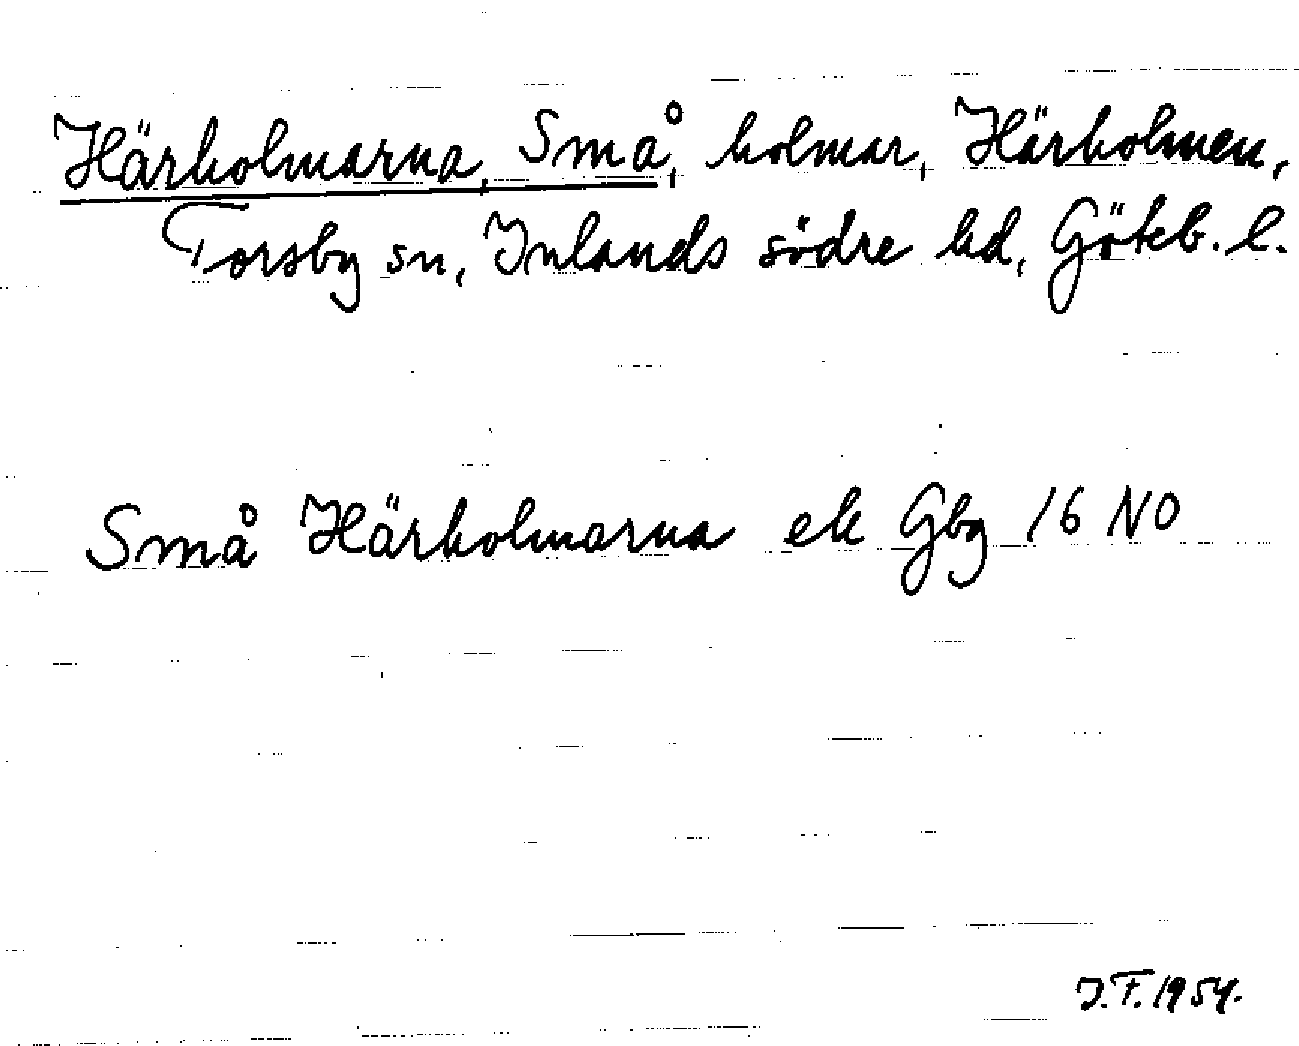 Härholmarna, Små, holmar, Härholmen,
Torsby sn, Inlands södre hd, Göteb. l.
Små Härholmarna ek Gbg 16 NO
J.F. 1954.